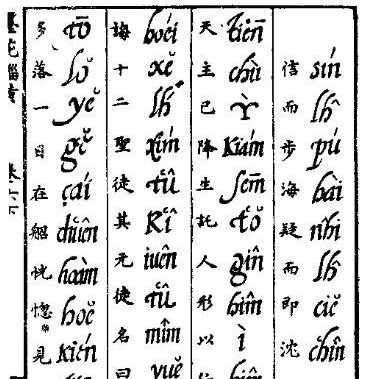 信而步海疑而即沈
sín lĥ pú hài nhî lĥ ciĕ chîn
天主已降生託人形以
tiēn chù ỳ kiám sēm tŏ gîn hîm ì
誨十二聖徒其元徒名曰
hoéi xĕ lh́ xím tû kî iuên tû mîm yuĕ
多落一日在船恍惚見
tō lŏ yĕ gĕ çái chuên hoàm hoĕ kién
墨苑緇黃